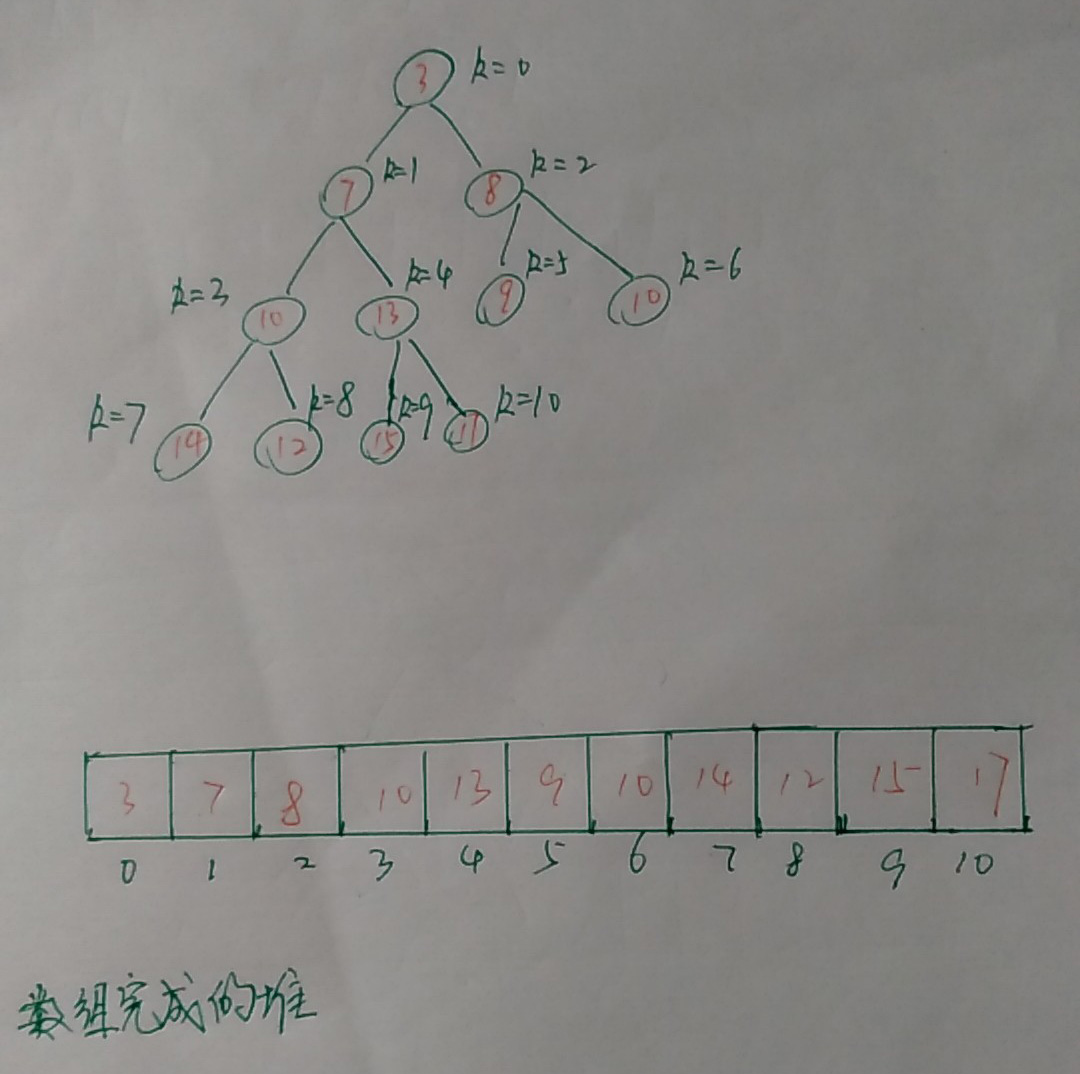 3 k=0
7 k=1 8 k=2
k=3 10 k=4 13 k=5 9 10 k=6
k=7 14 k=8 12 k=9 15 k=10
3 7 8 10 13 9 10 14 12 15 17
0 1 2 3 4 5 6 7 8 9 10
数组完成的堆